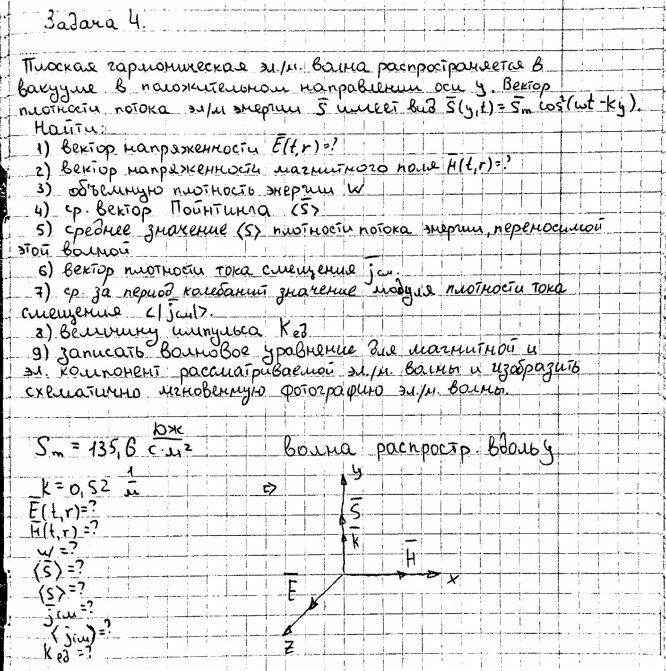 Задача 4.
Плоская гармоническая эл./м. волна распространяется в
вакууме в положительном направлении оси y. Вектор
плотности потока эл/м энергии S̄ имеет вид S̄(y,t) = S̄m cos²(ωt - ky).
Найти:
1) вектор напряженности Ē(t,r) = ?
2) вектор напряженности магнитного поля H̄(t,r) = ?
3) объемную плотность энергии w
4) ср. вектор Пойнтинга <S̄>
5) среднее значение <S> плотности потока энергии, переносимой
этой волной
6) вектор плотности тока смещения j̄см.
7) ср. за период колебаний значение модуля плотности тока
смещения <|j̄см|>.
8) величину импульса Kед
9) записать волновое уравнение для магнитной и
эл. компонент рассматриваемой эл./м. волны и изобразить
схематично мгновенную фотографию эл./м. волны.
Sm = 135,6 Дж/с·м²
волна распростр. вдоль y
k = 0,52 1/м
⇨
Ē(t,r) = ?
H̄(t,r) = ?
w = ?
<S̄> = ?
<S> = ?
j̄см = ?
<jсм> = ?
Kед = ?
y
S̄
k̄
H̄
x
Ē
z